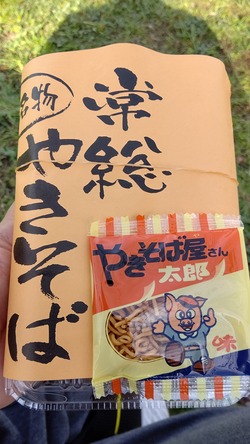 常総
名物
やきそば
やきそば屋さん
太郎
味